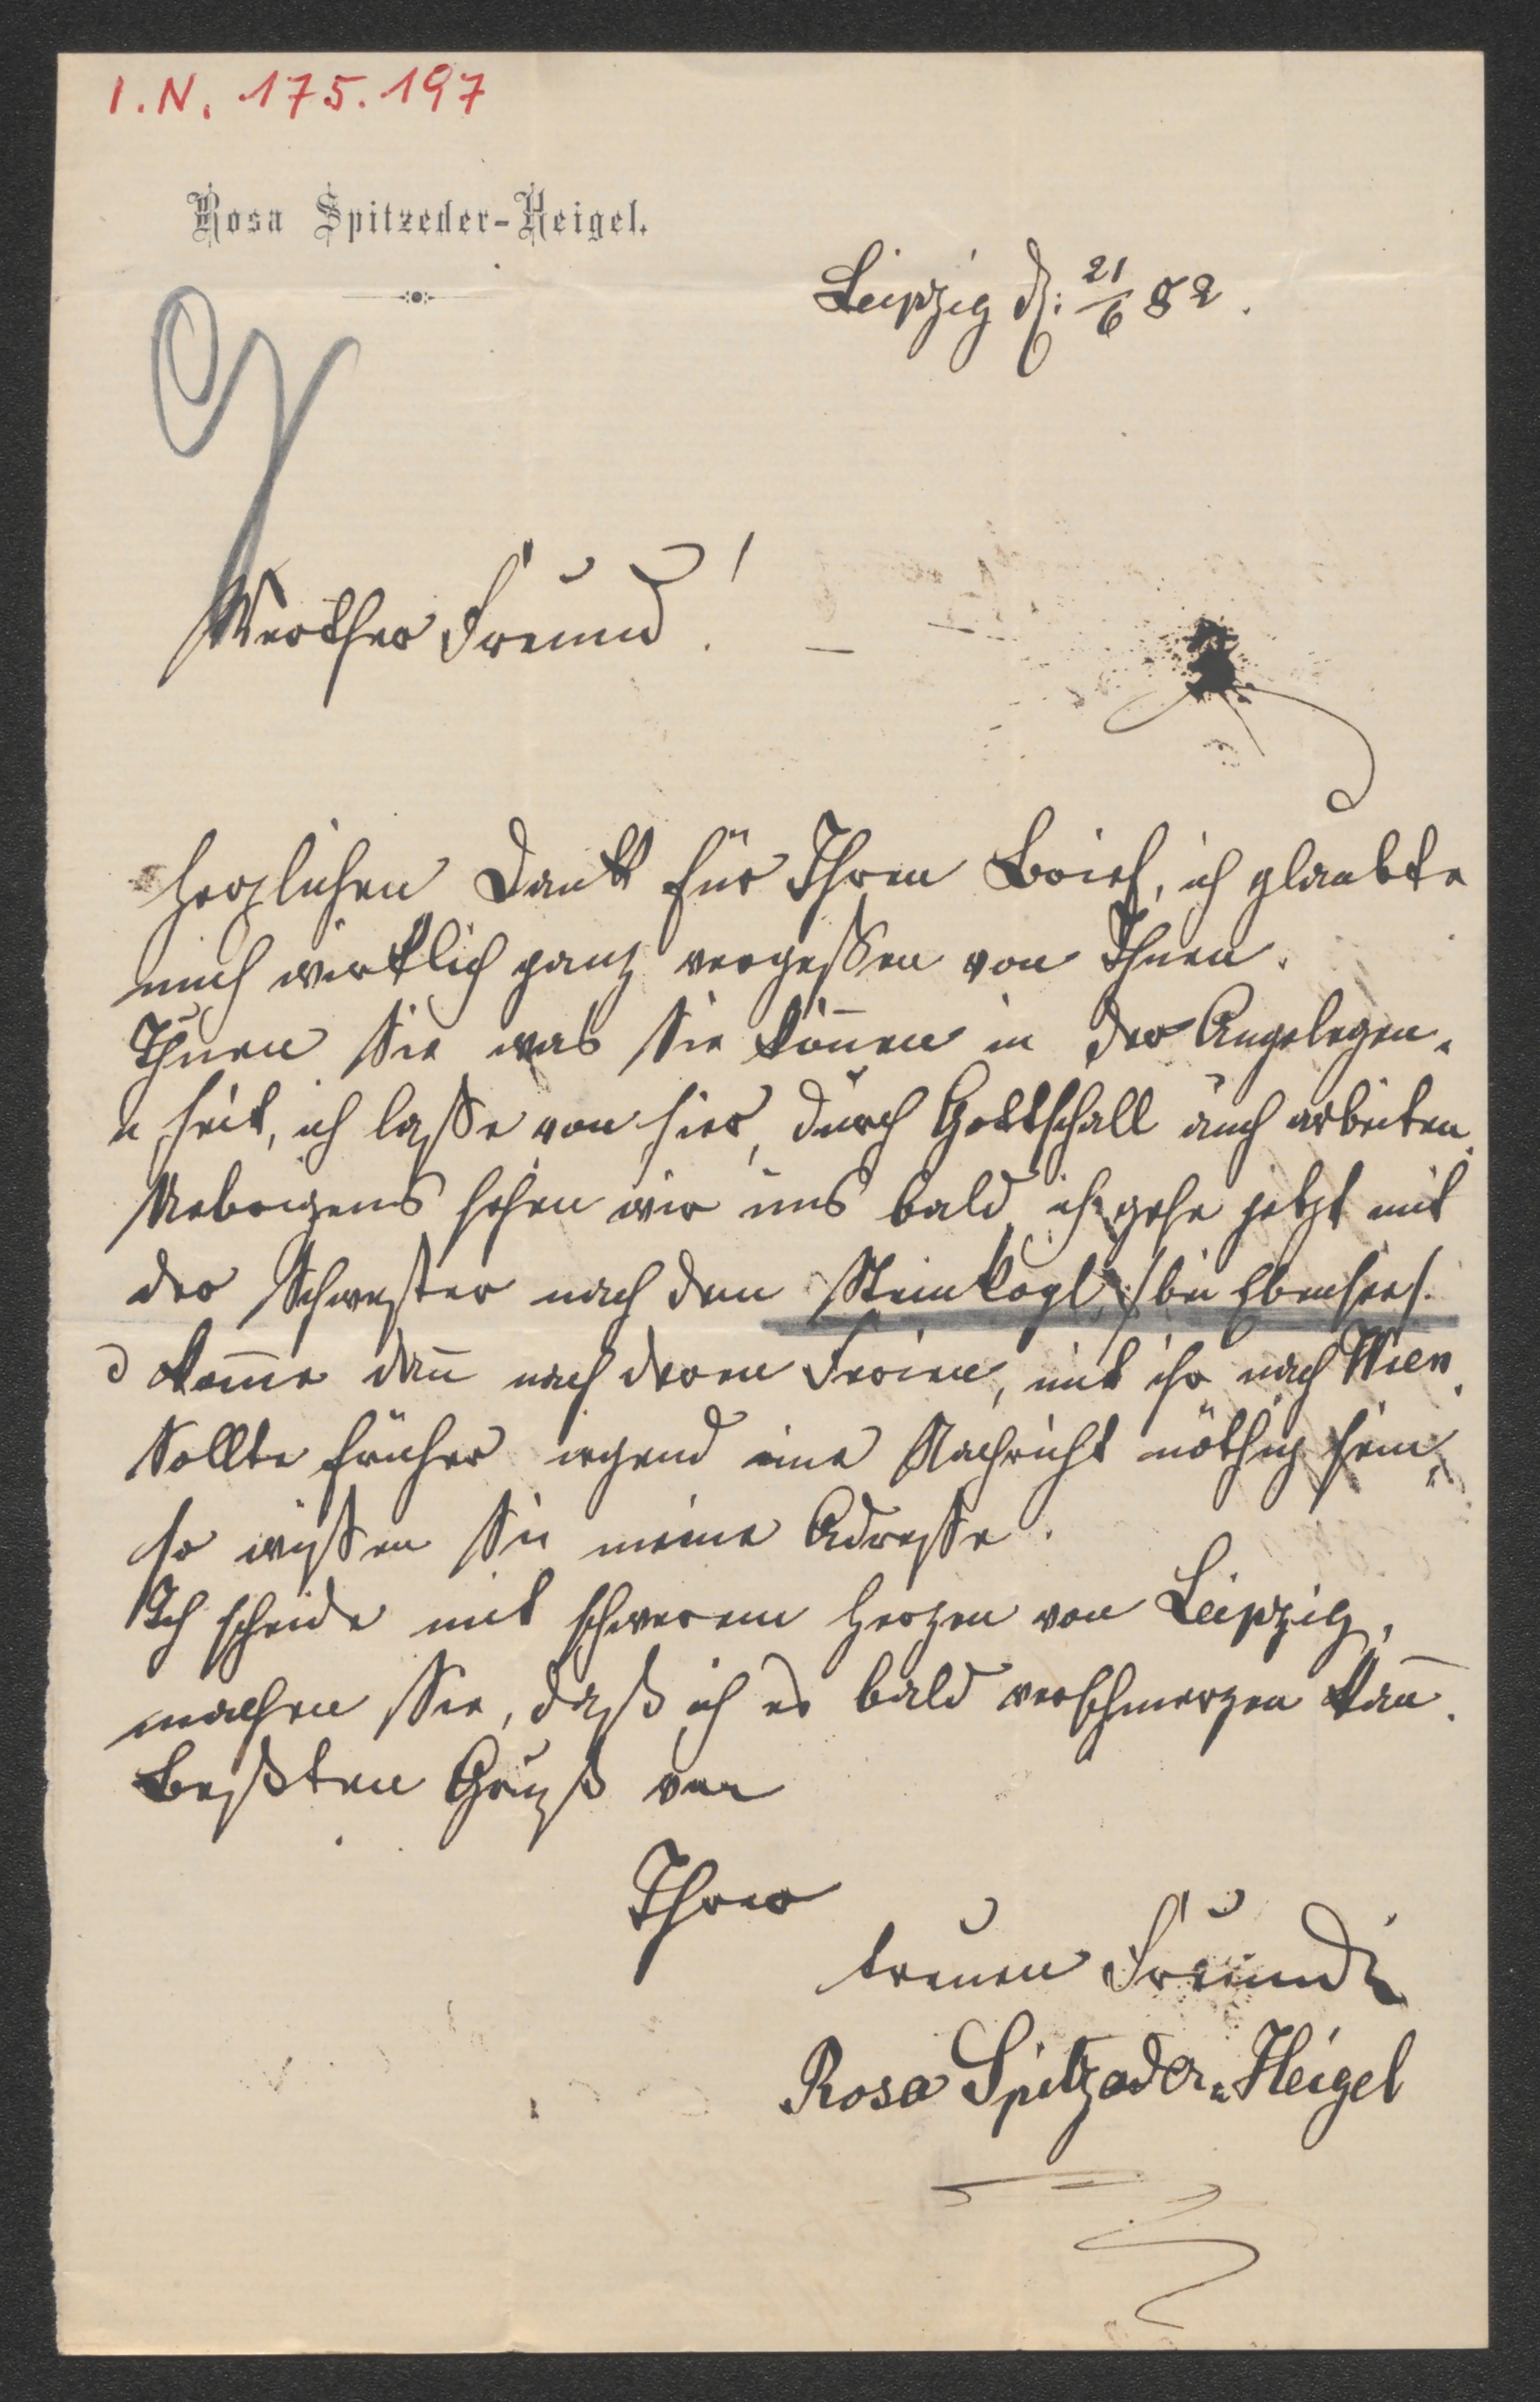 I. N. 175.197
Rosa Spitzeder-Heigel.
Leipzig d: 21/6 82.
Werther Freund!
Herzlichen Dank für Ihren Brief, ich glaubte
mich wirklich ganz vergessen von Ihnen.
Thuen Sie was Sie köñen in der Angelegen-
heit, ich lasse von hier, durch Gottschall auch arbeiten.
Uebrigens sehen wir uns bald, ich gehe jetzt mit
der Schwester nach dem Steinkogl /: bei Ebensee/.
kom̄e dañ nach deren Ferien, mit ihr nach Wien.
Sollte früher irgend eine Nachricht nöthig sein,
so wissen Sie meine Adresse.
Ich scheide mit schwerem Herzen von Leipzig,
machen Sie, daß ich es bald verschmerzen kañ.
Beßten Gruß von
Ihrer
treuen Freundin
Rosa Spitzeder-Heigel